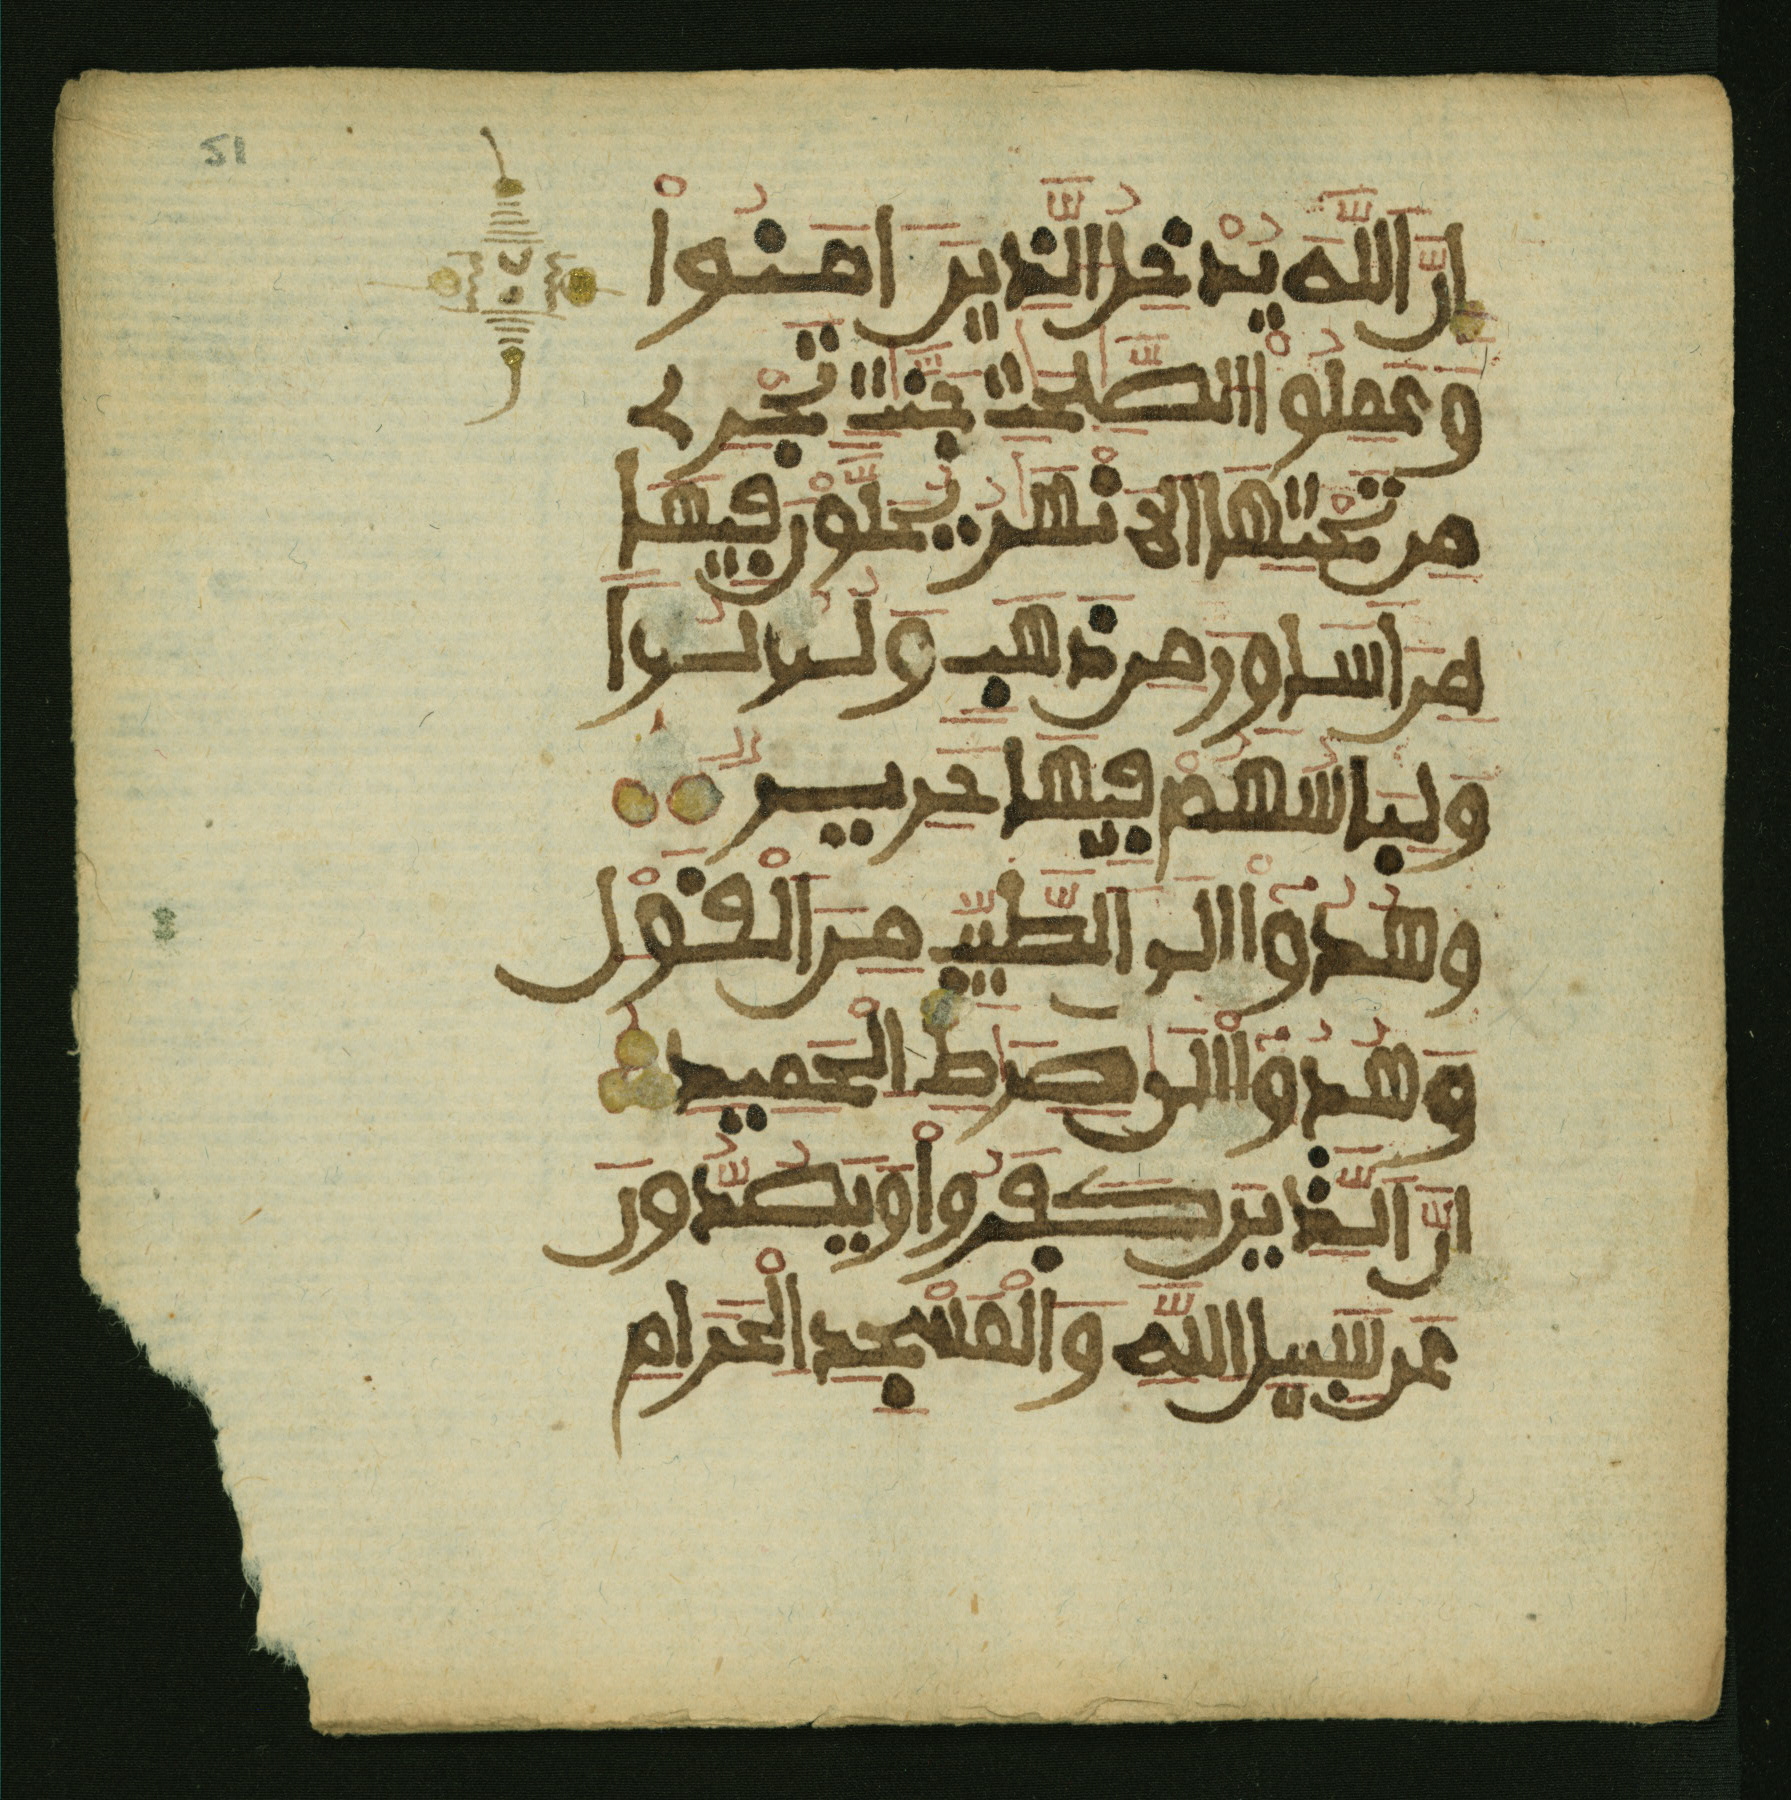 51
إِنَّ ٱللَّهَ يُدْخِلُ ٱلَّذِينَ ءَامَنُوا۟
وَعَمِلُوا۟ ٱلصَّٰلِحَٰتِ جَنَّٰتٍ تَجْرِے
مِن تَحْتِهَا ٱلَانْهَٰرُ يُحَلَّوْنَ فِيهَا
مِنَ اَسَاوِرَ مِن ذَهَبٍ وَلُولُوا
وَلِبَاسُهُمْ فِيهَا حَرِيرٌ
وَهُدُوٓا۟ إِلَى ٱلطَّيِّبِ مِنَ ٱلْقَوْلِ
وَهُدُوٓا۟ إِلَىٰ صِرَٰطِ ٱلْحَمِيدِ
إِنَّ ٱلَّذِينَ كَفَرُوا۟ وَيَصُدُّونَ
عَن سَبِيلِ ٱللَّهِ وَٱلْمَسْجِدِ ٱلْحَرَامِ